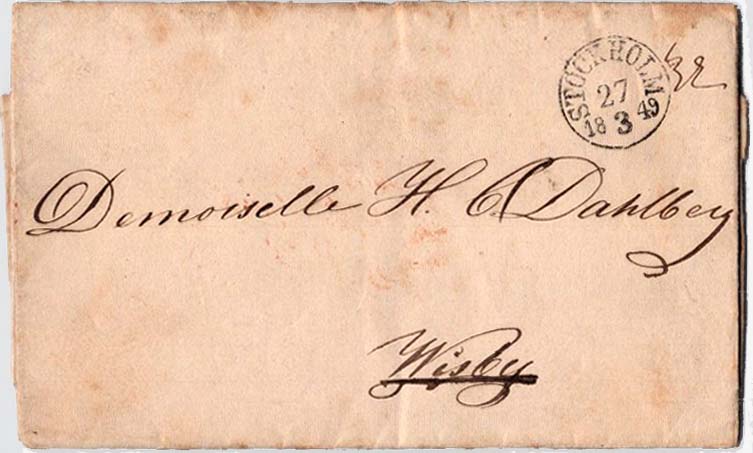 STOCKHOLM
27
18 3 49
Demoiselle H. C. Dahlberg
Wisby